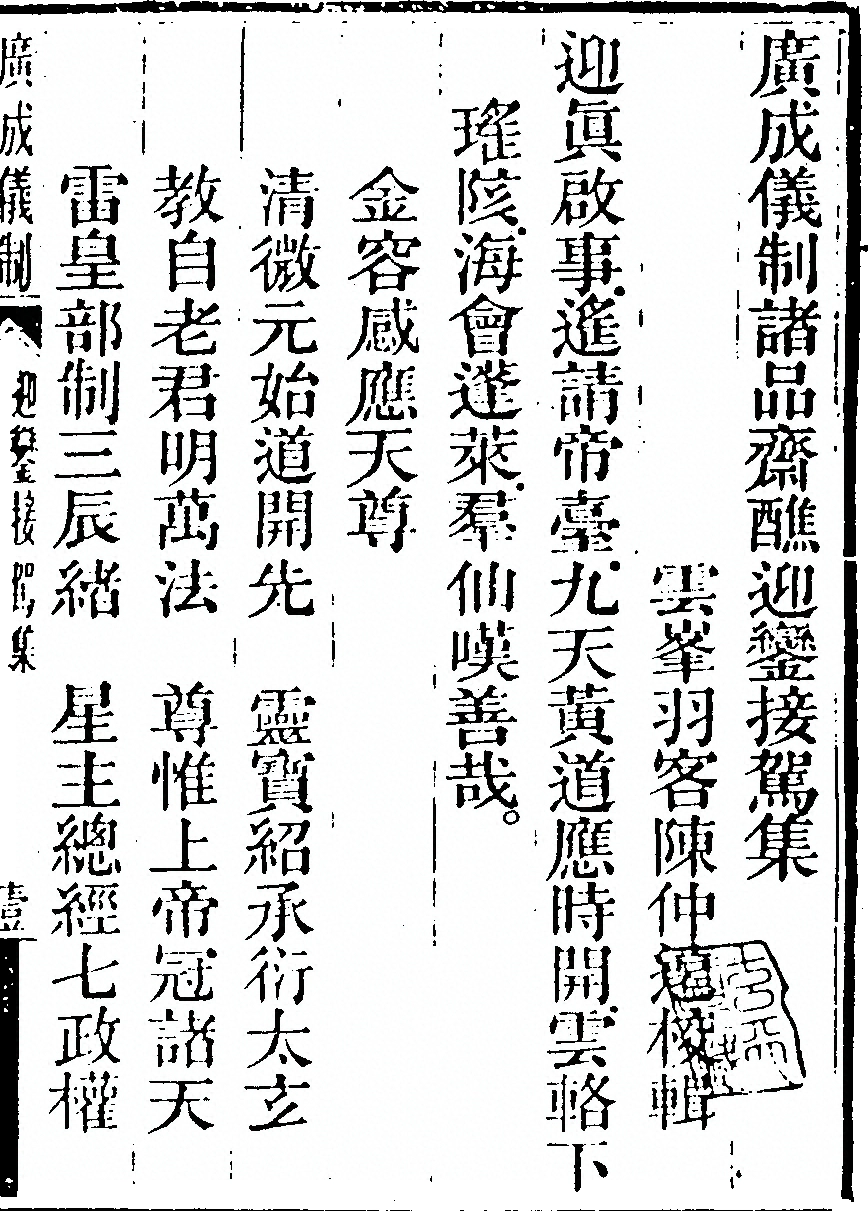 廣成儀制諸品齋醮迎鑾接駕集
雲峯羽客陳仲遠校輯
迎眞啟事遙請帝臺九天黃道應時開雲輅下
瑤陔海會蓬萊羣仙嘆善哉。
金容感應天尊
清微元始道開先 靈寶紹承衍太玄
教自老君明萬法 尊惟上帝冠諸天
雷皇部制三辰緒 星主總經七政權
廣成儀制 迎鑾接駕集 壹